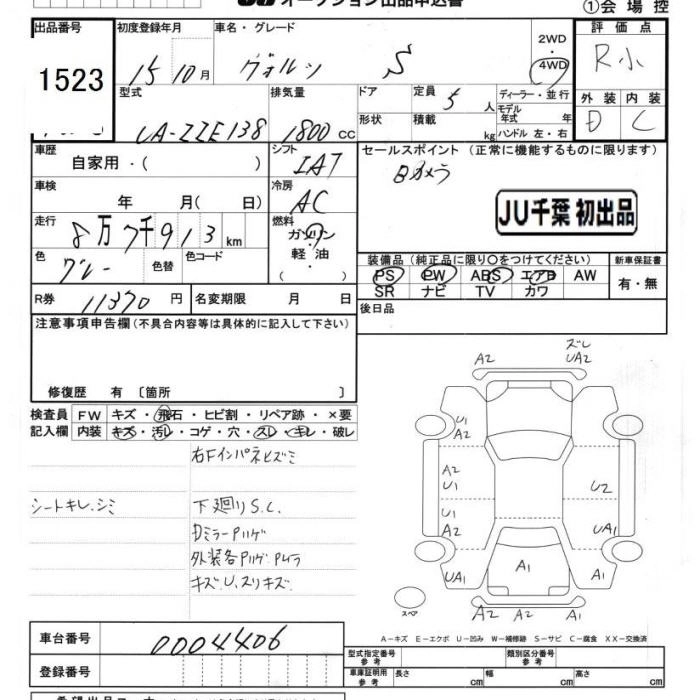 オークション出品申込書
①会場控
出品番号 初度登録年月 車名・グレード 2WD・4WD 評価点
1523 15 10月 ヴォルツ S R小
型式 排気量 ドア 定員 5人 ディーラー・並行 外装 内装
UA-ZZE138 1800cc 形状 積載 kg モデル年式 年 D C
ハンドル 左・右
車歴 自家用・( ) シフト IAT セールスポイント (正常に機能するものに限ります)
Bカメラ
車検 年 月( 日) 冷房 AC
JU千葉 初出品
走行 8万7千913km 燃料 ガソリン・軽油
色 グレー 色替 色コード
装備品 (純正品に限り○をつけてください) 新車保証書
PS PW ABS エアB AW 有・無
SR ナビ TV カワ
R券 11370円 名変期限 月 日
後日品
注意事項申告欄 (不具合内容等は具体的に記入して下さい)
修復歴 有 〔箇所 〕
検査員 FW キズ・飛石・ヒビ割・リペア跡・×要
記入欄 内装 キズ・汚レ・コゲ・穴・スレ・キレ・破レ
右Fインパネヒズミ
シートキレ、シミ 下廻りS.C.
DミラーPハゲ
外装各Pハゲ.Pムラ
キズ、U.スリキズ
A2 ズレ UA2
U1 A2
A2 U1
U2
U1 A2
UA1
UA1 A1 A1
スペア
A2 A2 A1
A－キズ E－エクボ U－凹み W－補修跡 S－サビ C－腐食 XX－交換済
車台番号 0004406
型式指定番号 参考 類別区分番号 参考
登録番号 車庫証明用 参考 長さ cm 幅 cm 高さ cm